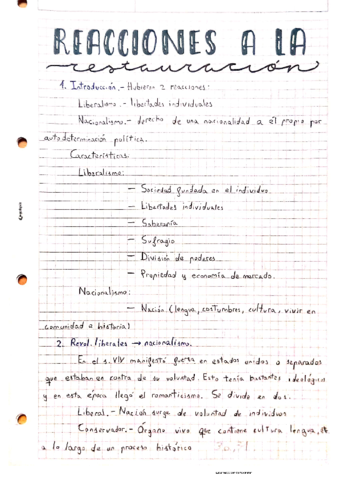 REACCIONES A LA
restauración
1. Introducción.- Hubieron 2 reacciones:
Liberalismo.- libertades individuales
Nacionalismo.- derecho de una nacionalidad a el propio por
autodeterminación política.
Características:
Liberalismo:
- Sociedad fundada en el individuo
- Libertades individuales
- Soberanía
- Sufragio
- División de poderes
- Propiedad y economía de mercado.
Nacionalismo:
- Nación (lengua, costumbres, cultura, vivir en
comunidad e historia)
2. Revol. liberales → nacionalismo.
En el s. XIV manifestó fuerza en estados unidos o separados
que estaban en contra de su voluntad. Esto tenía bastantes ideológica
y en esta época llegó el romanticismo. Se divide en dos.
Liberal.- Nación surge de voluntad de individuos
Conservador.- Órgano vivo que contiene cultura lengua,
a lo largo de un proceso histórico